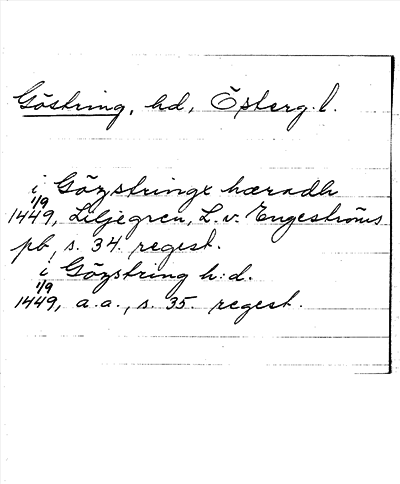 Göstring, hd, Österg. l.
i Gözstringx hæradh
1/9
1449, Liljegren, L. v. Engeströms
pb, s. 34. regest.
i Gözstring h:d.
1/9
1449, a. a., s. 35. regest.